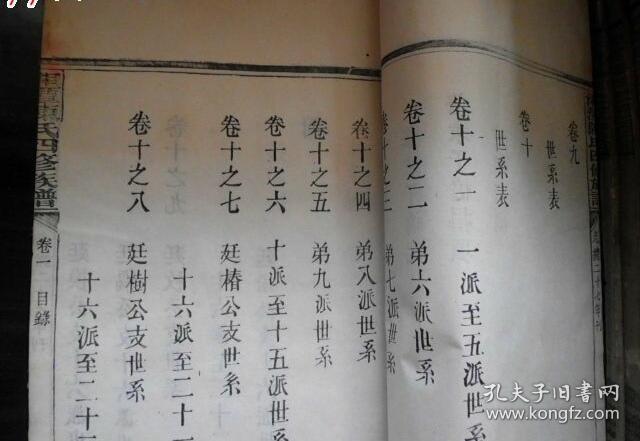 卷九
世系表
卷十
世系表
卷十之一 一派至五派世系
卷十之二 弟六派世系
卷十之三 弟七派世系
卷十之四 弟八派世系
卷十之五 弟九派世系
卷十之六 十派至十五派世系
卷十之七 廷椿公支世系
十六派至二十一
卷十之八 廷樹公支世系
十六派至二十二
氏四修族譜 卷一 目錄
孔夫子旧书网
www.kongfz.com